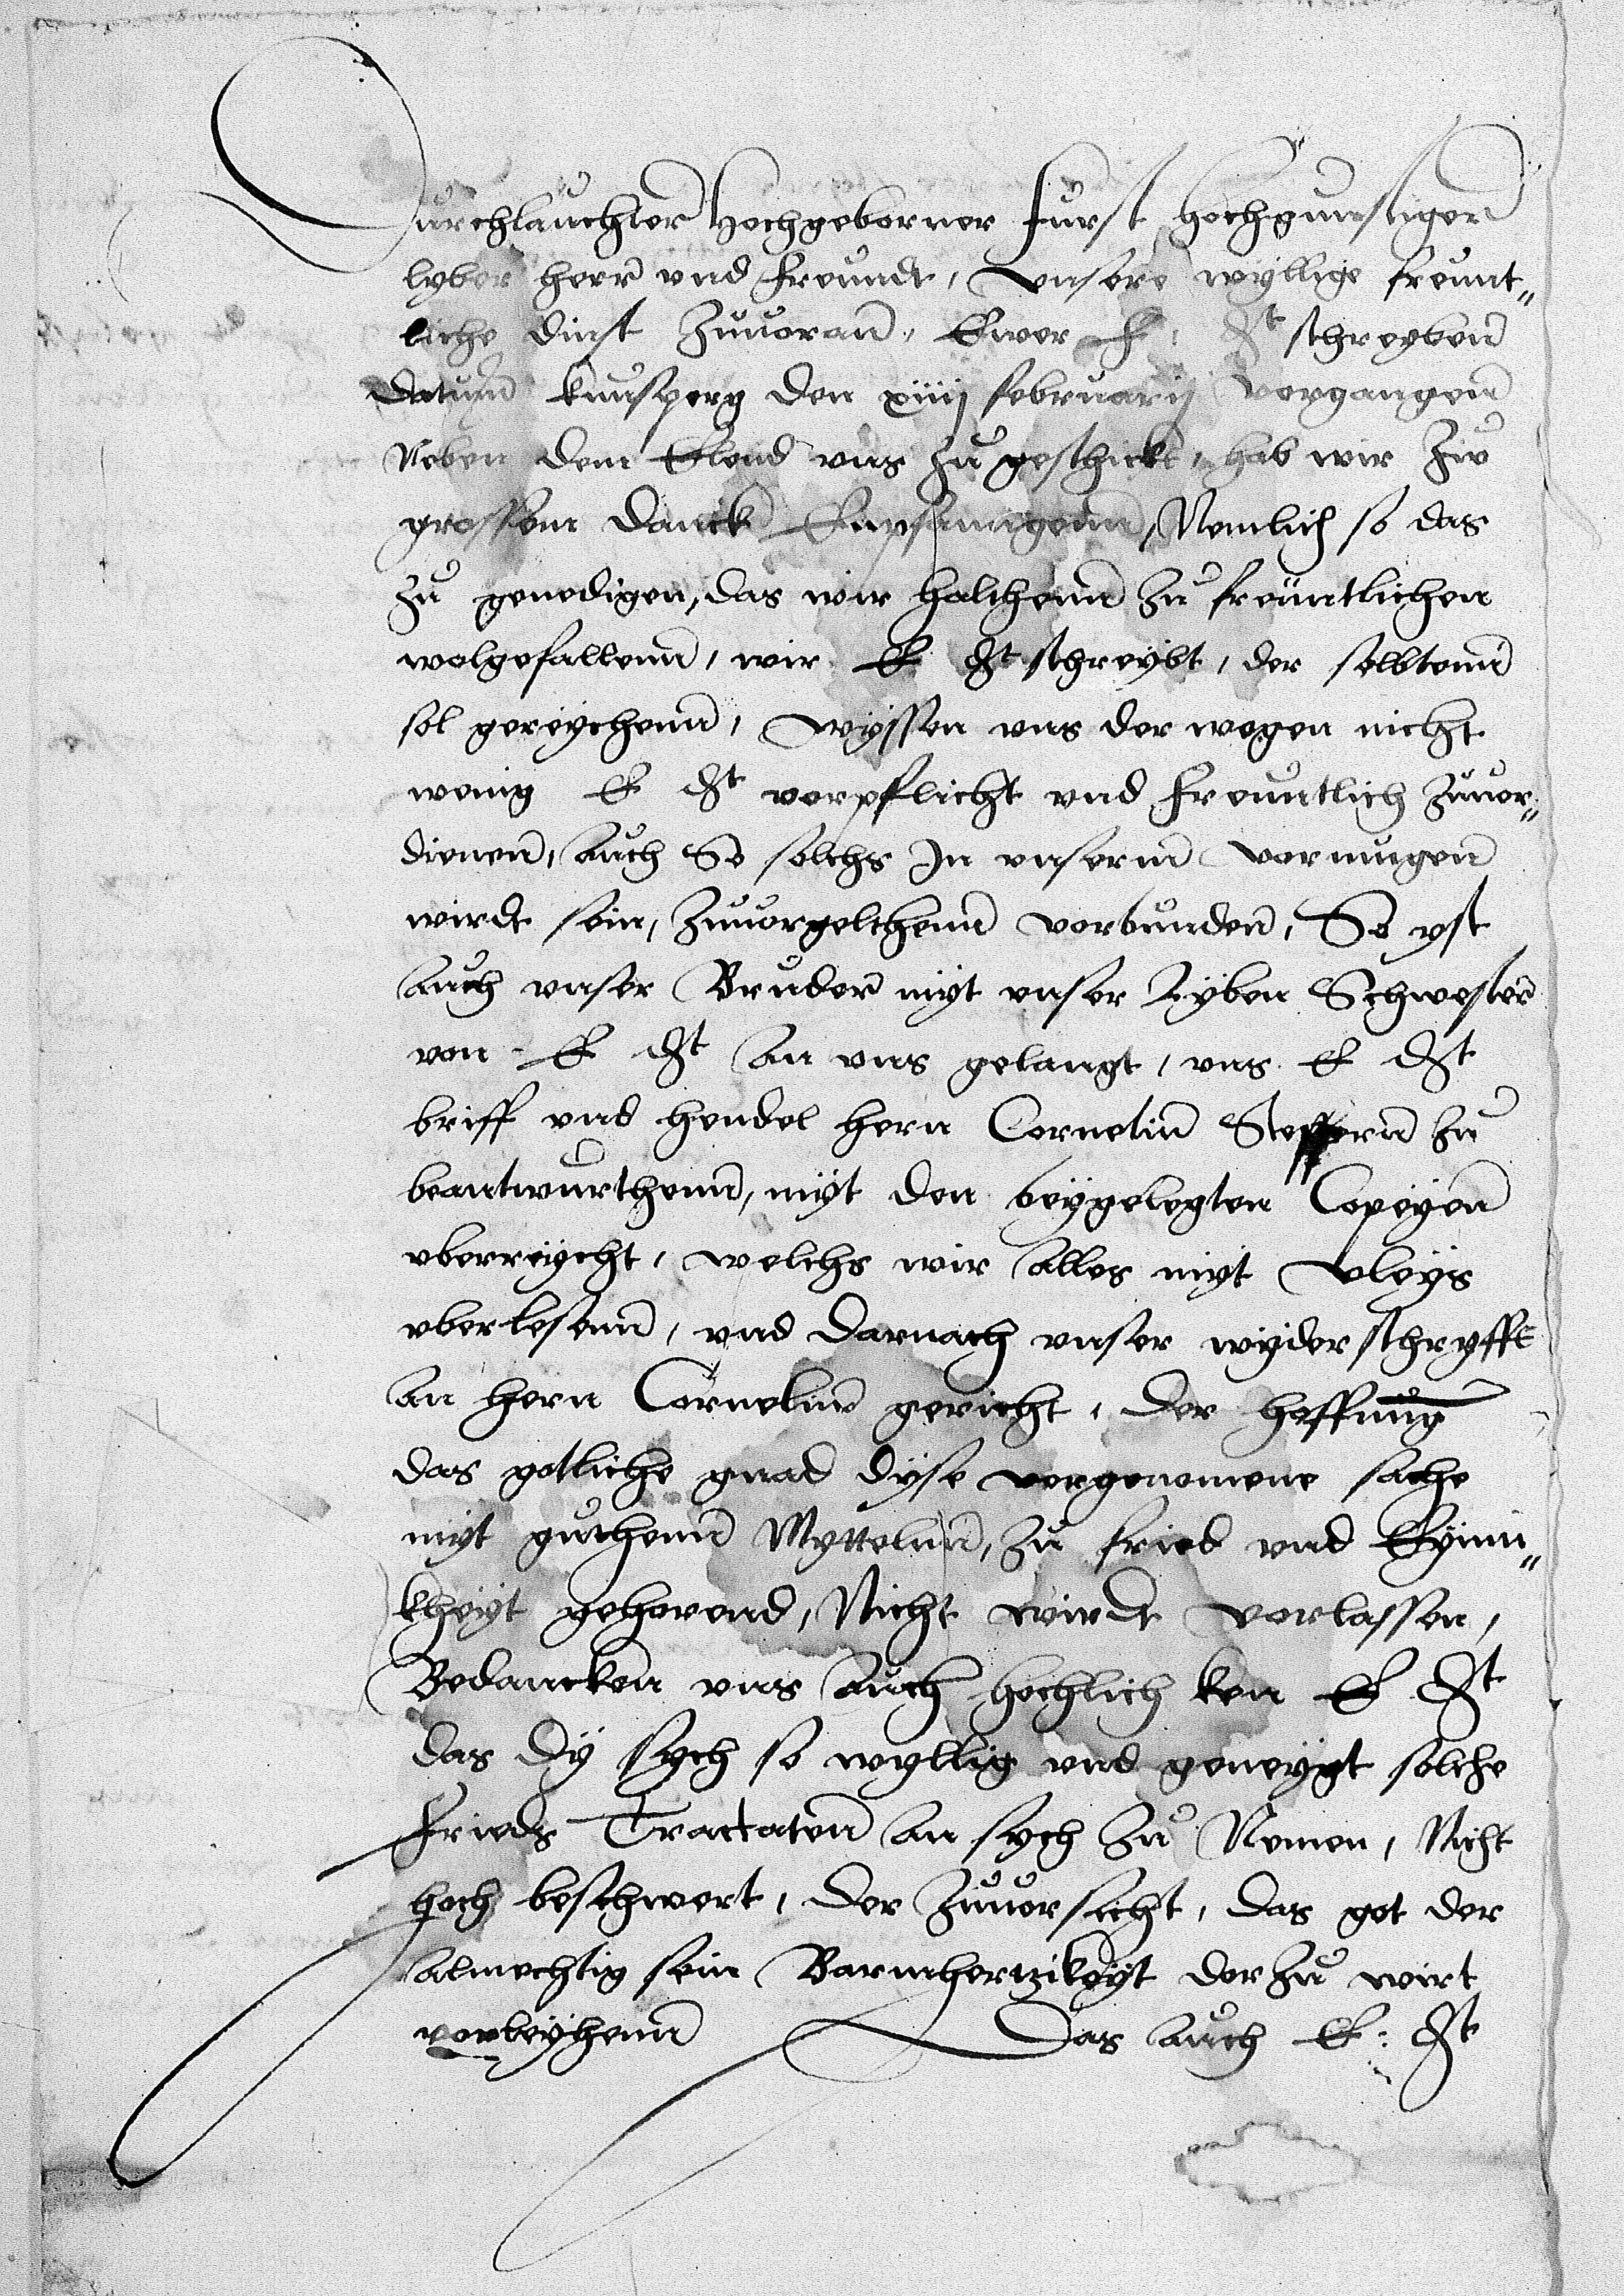 Durchlauchter Hochgeborner furst hochgunstiger
lyber herr vnd freundt, vnsere wyllige freunt„
liche dinst zuuorann, Ewer F. Dt schreyben
datum kunsperg den xiiij februarij vergangen
Neben dem Elend vns zu geschickt, hab wir zw
grossem danck Empfanngenn, Nemlich so das
zu genedigen, das wir halthenn zu freuntlichen
wolgefallenn, wir E Dt schreybt, der selbtenn
sol gereychenn, wyssen vns der wegen nicht
wenig E Dt vorpflicht vnd freuntlich zuuor„
dienen, auch So solchs Jn vnserm vormugen
wirdt sein, zuuorgelthenn vorbunden, So yst
auch vnser Bruder myt vnser lyben Schwester
von E Dt an vns gelangt, vns E Dt
briff vnd hendel hern Cornelium zu
beantwurthenn, myt den beygelegten Copeyen
vberreycht, welchs wir alles myt vleys
vberlesenn, vnd darnach vnser wyder schryfft
an hern Cornelium gericht, der hoffnung
das gotliche gnad dyse vorgenomene sache
myt guthenn Myttelnn, zu fried vnd Eynni„
kheyt gehorend, Nicht wirdt vorlassen,
Bedancken vns auch hochlich ken E Dt
das dy sych so wyllig vnd geneygt solche
frieds Tractaten an sych zu Nemen, Nicht
hoch beschwert, der zuuorsicht, das got der
almechtig sein Barmhertzikeyt der zu wirt
vorleyhenn Das auch E: Dt